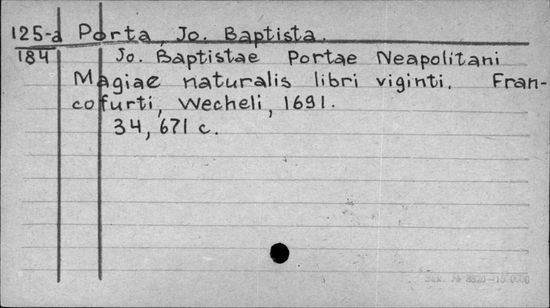 125-a Porta, Jo. Baptista.
184 Jo. Baptistae Portae Neapolitani
Magiae naturalis libri viginti. Fran-
cofurti, Wecheli, 1691.
34, 671 c.